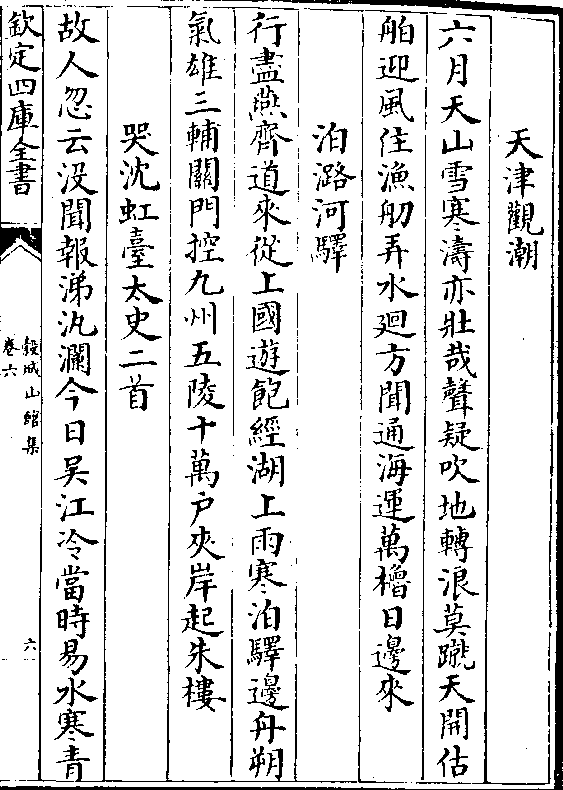 天津觀潮
六月天山雪寒濤亦壯哉聲疑吹地轉浪莫蹴天開估
舶迎風住漁舠弄水廻方聞通海運萬櫓日邊來
泊潞河驛
行盡燕齊道來從上國遊飽經湖上雨寒泊驛邊舟朔
氣雄三輔關門控九州五陵十萬户夾岸起朱樓
哭沈虹臺太史二首
故人忽云没聞報涕汍瀾今日吴江冷當時易水寒青
欽定四庫全書
榖城山館集
卷六
六